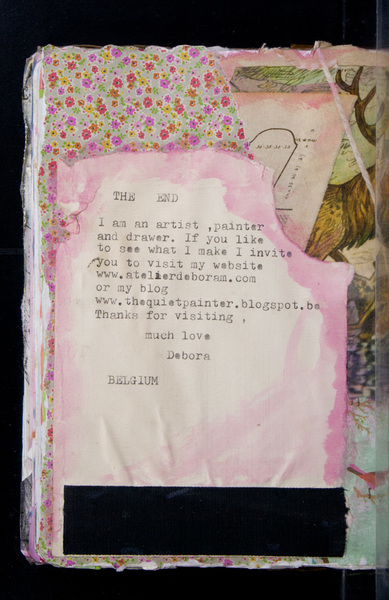 THE END
I am an artist ,painter
and drawer. If you like
to see what I make I invite
you to visit my website
www.atelierdeboram.com
or my blog
www.thequietpainter.blogspot.be
Thanks for visiting ,
much love
Debora
BELGIUM